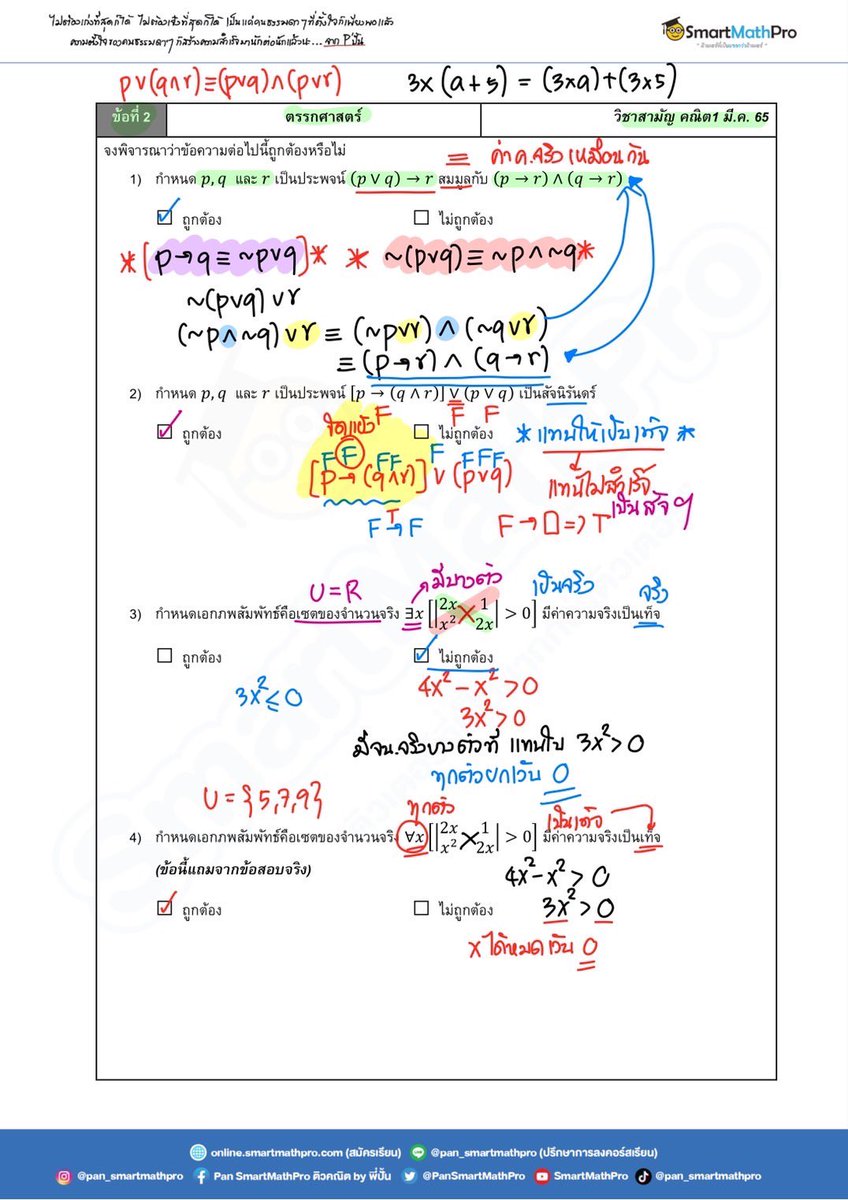 ไม่ต้องเก่งที่สุดก็ได้ ไม่ต้องเจ๋งที่สุดก็ได้ เป็นแค่คนธรรมดา ๆ ที่ตั้งใจก็เพียงพอแล้ว
ความตั้งใจของคนธรรมดาๆ ก็สร้างความสำเร็จมานักต่อนักแล้วนะ ... จาก Pปั้น
SmartMathPro
p∨(q∧r)≡(p∨q)∧(p∨r) 3×(a+5) = (3×a)+(3×5)
ข้อที่ 2 ตรรกศาสตร์ วิชาสามัญ คณิต1 มี.ค. 65
จงพิจารณาว่าข้อความต่อไปนี้ถูกต้องหรือไม่
≡ ค่าค.จริงเหมือนกัน
1) กำหนด p, q และ r เป็นประพจน์ (p ∨ q) → r สมมูลกับ (p → r) ∧ (q → r)
☑ ถูกต้อง ☐ ไม่ถูกต้อง
*[p→q≡~p∨q]* * ~(p∨q)≡~p∧~q*
~(p∨q)∨r
(~p∧~q)∨r ≡ (~p∨r) ∧ (~q∨r)
≡ (p→r) ∧ (q→r)
2) กำหนด p, q และ r เป็นประพจน์ [p → (q ∧ r)] ∨ (p ∨ q) เป็นสัจนิรันดร์
F F
☑ ถูกต้อง ☐ ไม่ถูกต้อง *แทนให้เป็นเท็จ*
F
F F FF F FFF
[p→(q∧r)] ∨ (p∨q) แทนไม่สำเร็จ
เป็นสัจฯ
T
F→F F→□=>T
U=R มีบางตัว เป็นจริง จริง
3) กำหนดเอกภพสัมพัทธ์คือเซตของจำนวนจริง ∃x [|2x 1
x² 2x| > 0] มีค่าความจริงเป็นเท็จ
☐ ถูกต้อง ☑ ไม่ถูกต้อง
3x²≤0 4x²-x²>0
3x²>0
มีจน.จริงบางตัวที่ แทนใน 3x²>0
ทุกตัวยกเว้น 0
U={5,7,9} ทุกตัว เป็นเท็จ
4) กำหนดเอกภพสัมพัทธ์คือเซตของจำนวนจริง ∀x [|2x 1
x² 2x| > 0] มีค่าความจริงเป็นเท็จ
(ข้อนี้แถมจากข้อสอบจริง) 4x²-x²>0
☑ ถูกต้อง ☐ ไม่ถูกต้อง 3x²>0
x ได้หมดเว้น 0
online.smartmathpro.com (สมัครเรียน) @pan_smartmathpro (ปรึกษาการลงคอร์สเรียน)
@pan_smartmathpro Pan SmartMathPro ติวคณิต by พี่ปั้น @PanSmartMathPro SmartMathPro @pan_smartmathpro